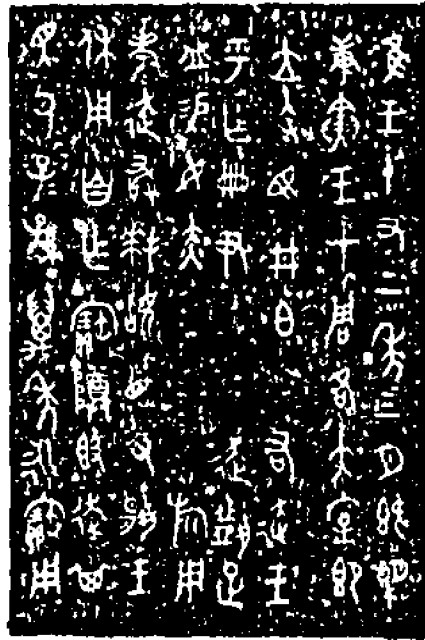 隹王十又二年三月既望
庚寅王才周各大室即
立𤔲馬井白右走王
乎乍冊尹走䵼疋
易女赤旂用
事走敢拜𩒨首對揚王
休用自乍寶尊𣪘走其
眔氒子子孫孫萬年永寶用